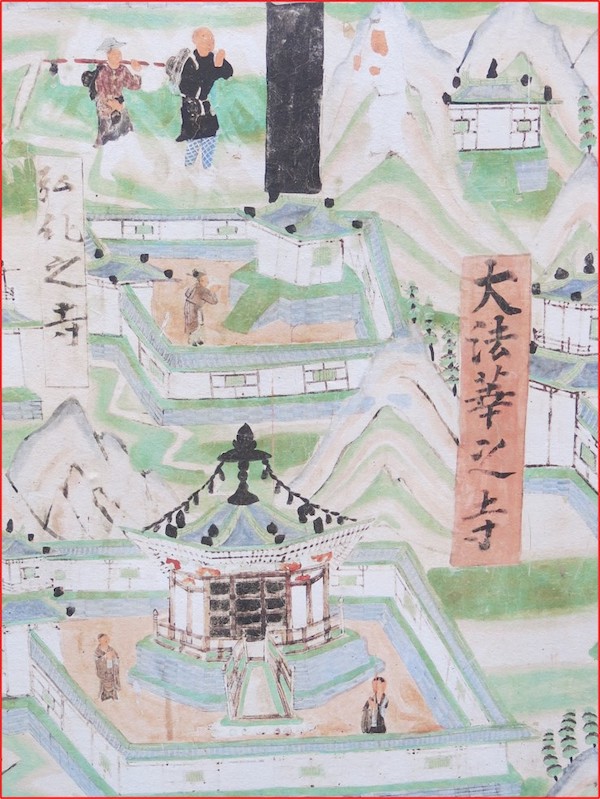 大法華之寺
弘化之寺